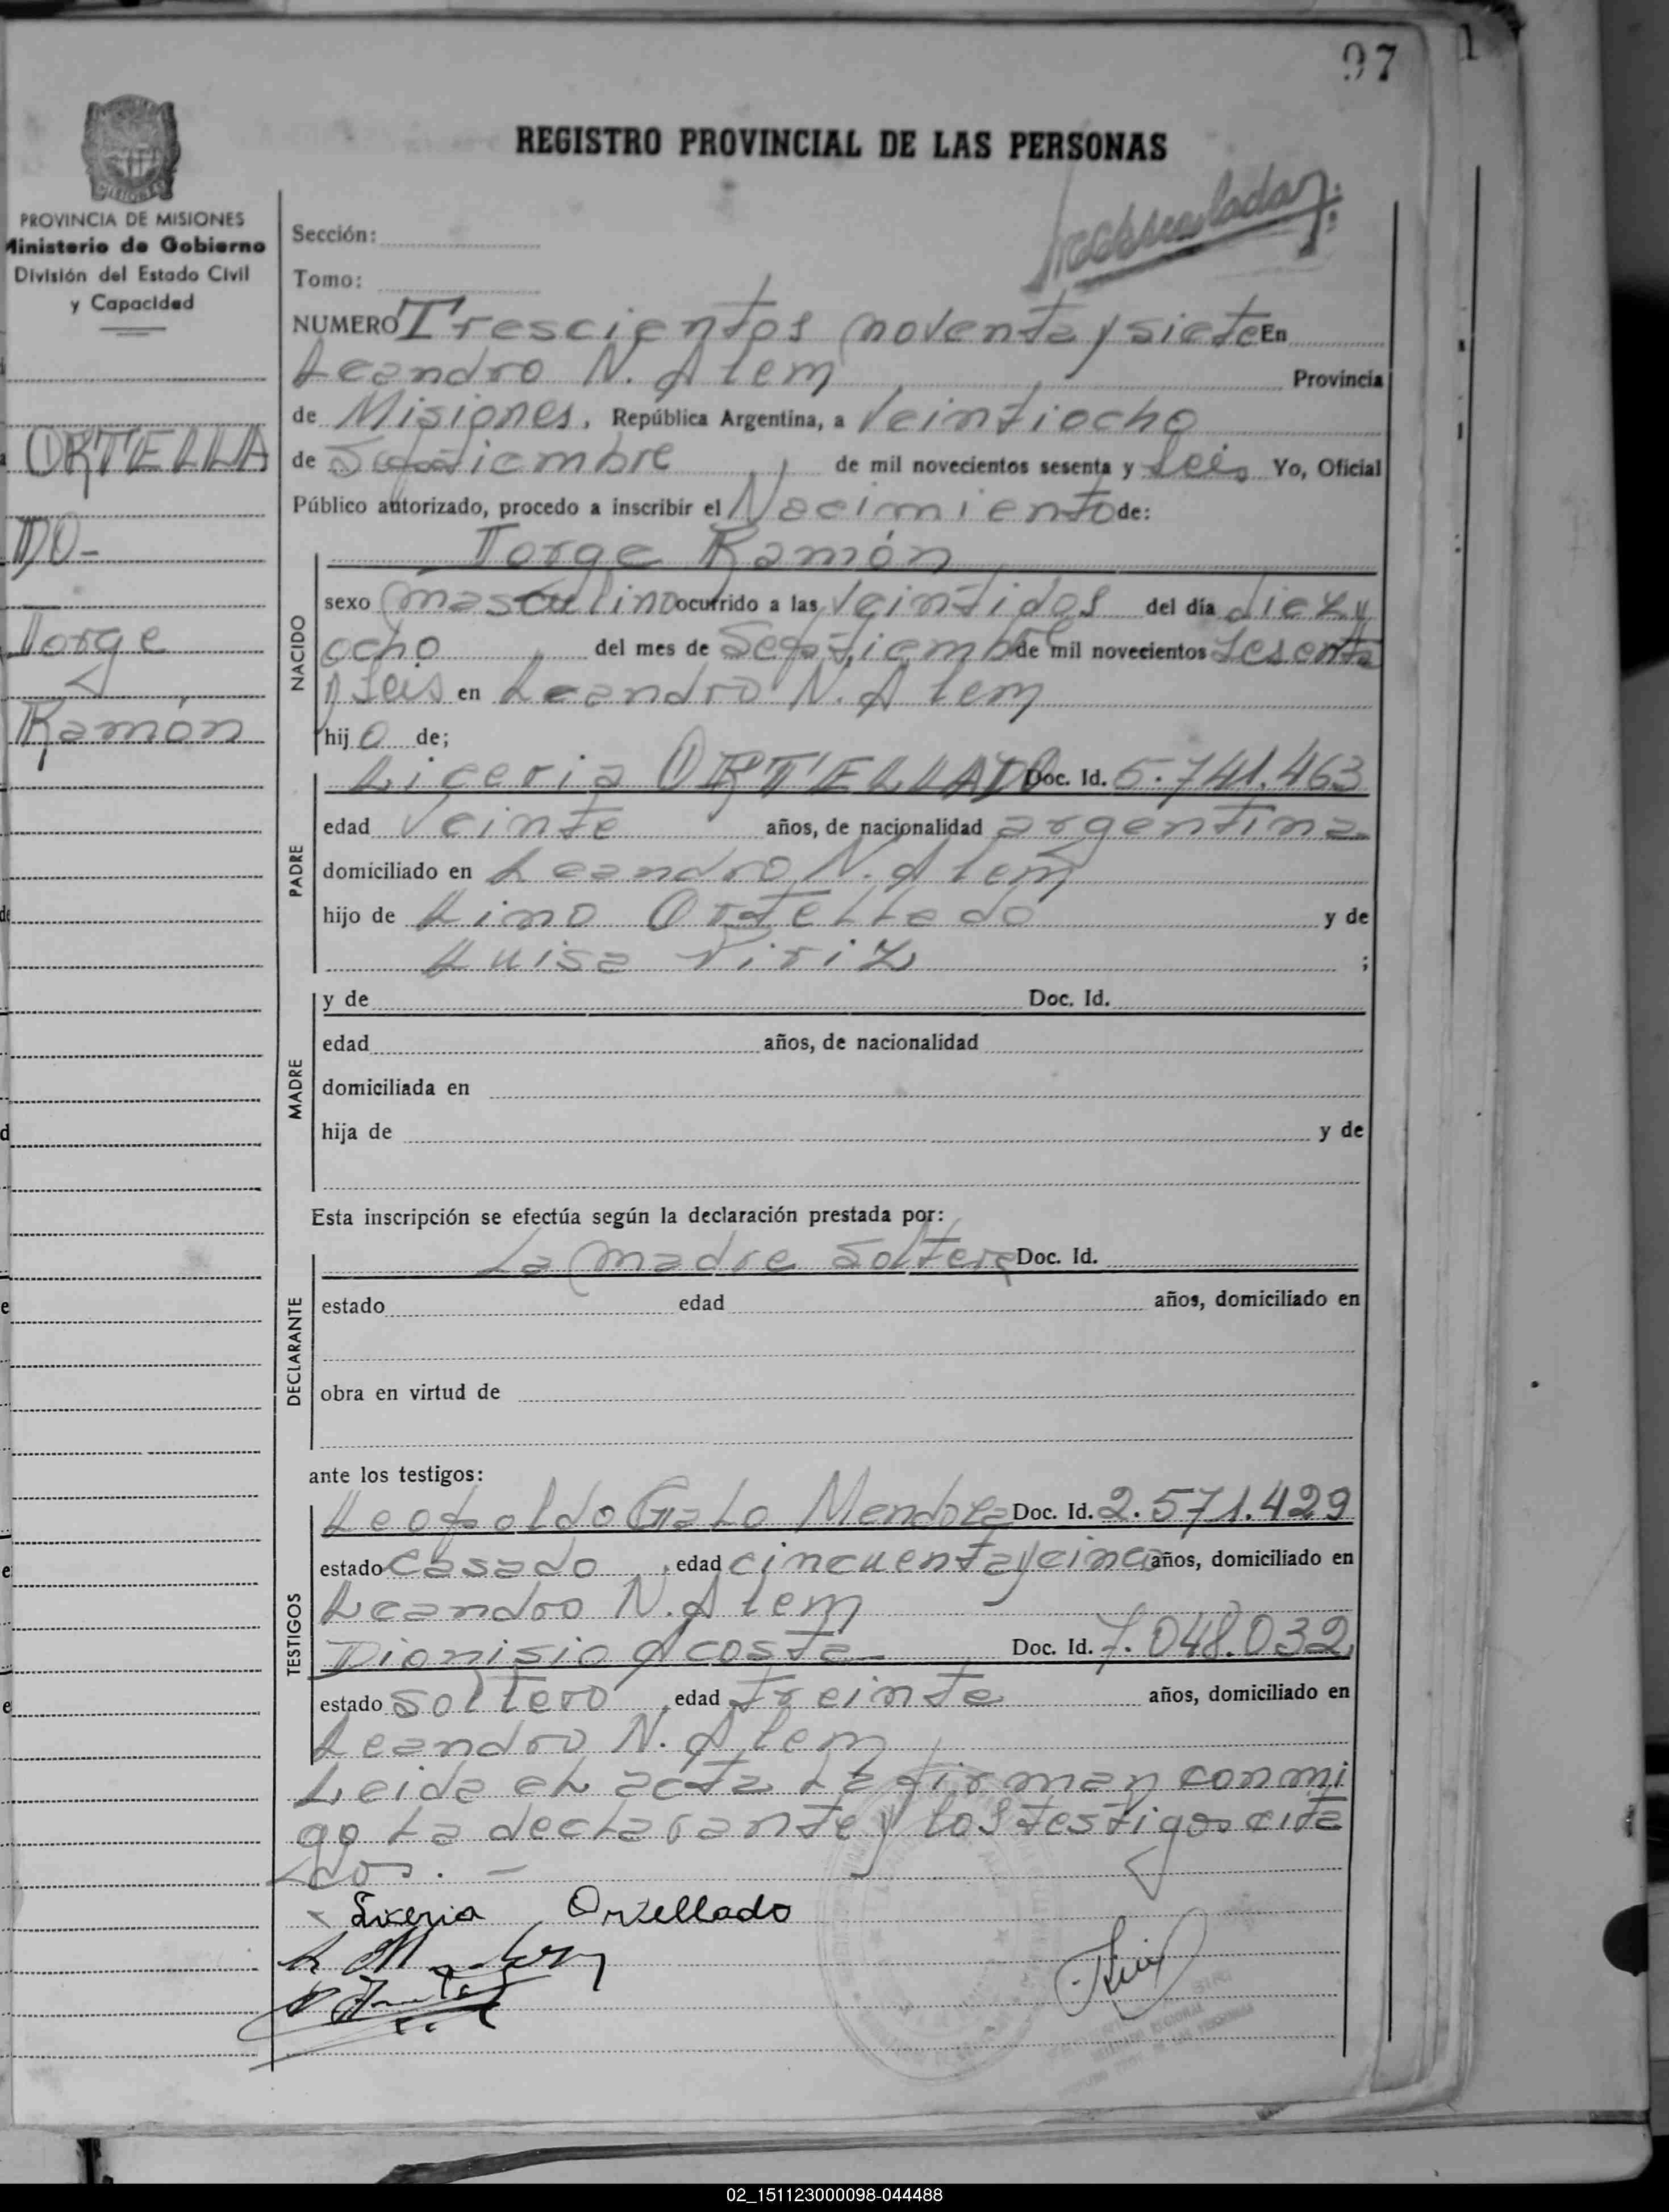 97
1
REGISTRO PROVINCIAL DE LAS PERSONAS
PROVINCIA DE MISIONES
Ministerio de Gobierno
División del Estado Civil
y Capacidad
ORTELLA
DO-
Jorge
Ramón
Sección:
Tomo:
NUMERO Trescientos noventa y siete En
Leandro N. Alem Provincia
de Misiones, República Argentina, a Veintiocho
de Septiembre de mil novecientos sesenta y seis Yo, Oficial
Público autorizado, procedo a inscribir el Nacimiento de:
Jorge Ramón
NACIDO
sexo masculino ocurrido a las veintidos del día diez y
ocho del mes de Septiembre de mil novecientos sesenta
y seis en Leandro N. Alem
hijo de;
PADRE
Liceria ORTELLADO Doc. Id. 5.741.463
edad veinte años, de nacionalidad argentina
domiciliado en Leandro N. Alem
hijo de Lino Ortellado y de
Luisa ;
MADRE
y de Doc. Id.
edad años, de nacionalidad
domiciliada en
hija de y de
Esta inscripción se efectúa según la declaración prestada por:
DECLARANTE
La madre soltera Doc. Id.
estado edad años, domiciliado en
obra en virtud de
ante los testigos:
TESTIGOS
Leopoldo Galo Mendoza Doc. Id. 2.571.429
estado casado edad cincuenta y cinco años, domiciliado en
Leandro N. Alem
Dionisio Acosta Doc. Id. 7.048.032
estado soltero edad treinta años, domiciliado en
Leandro N. Alem
Leida el acta la firman conmi
go la declarante y los testigos cita
dos. -
Liceria Ortellado
02_151123000098-044488